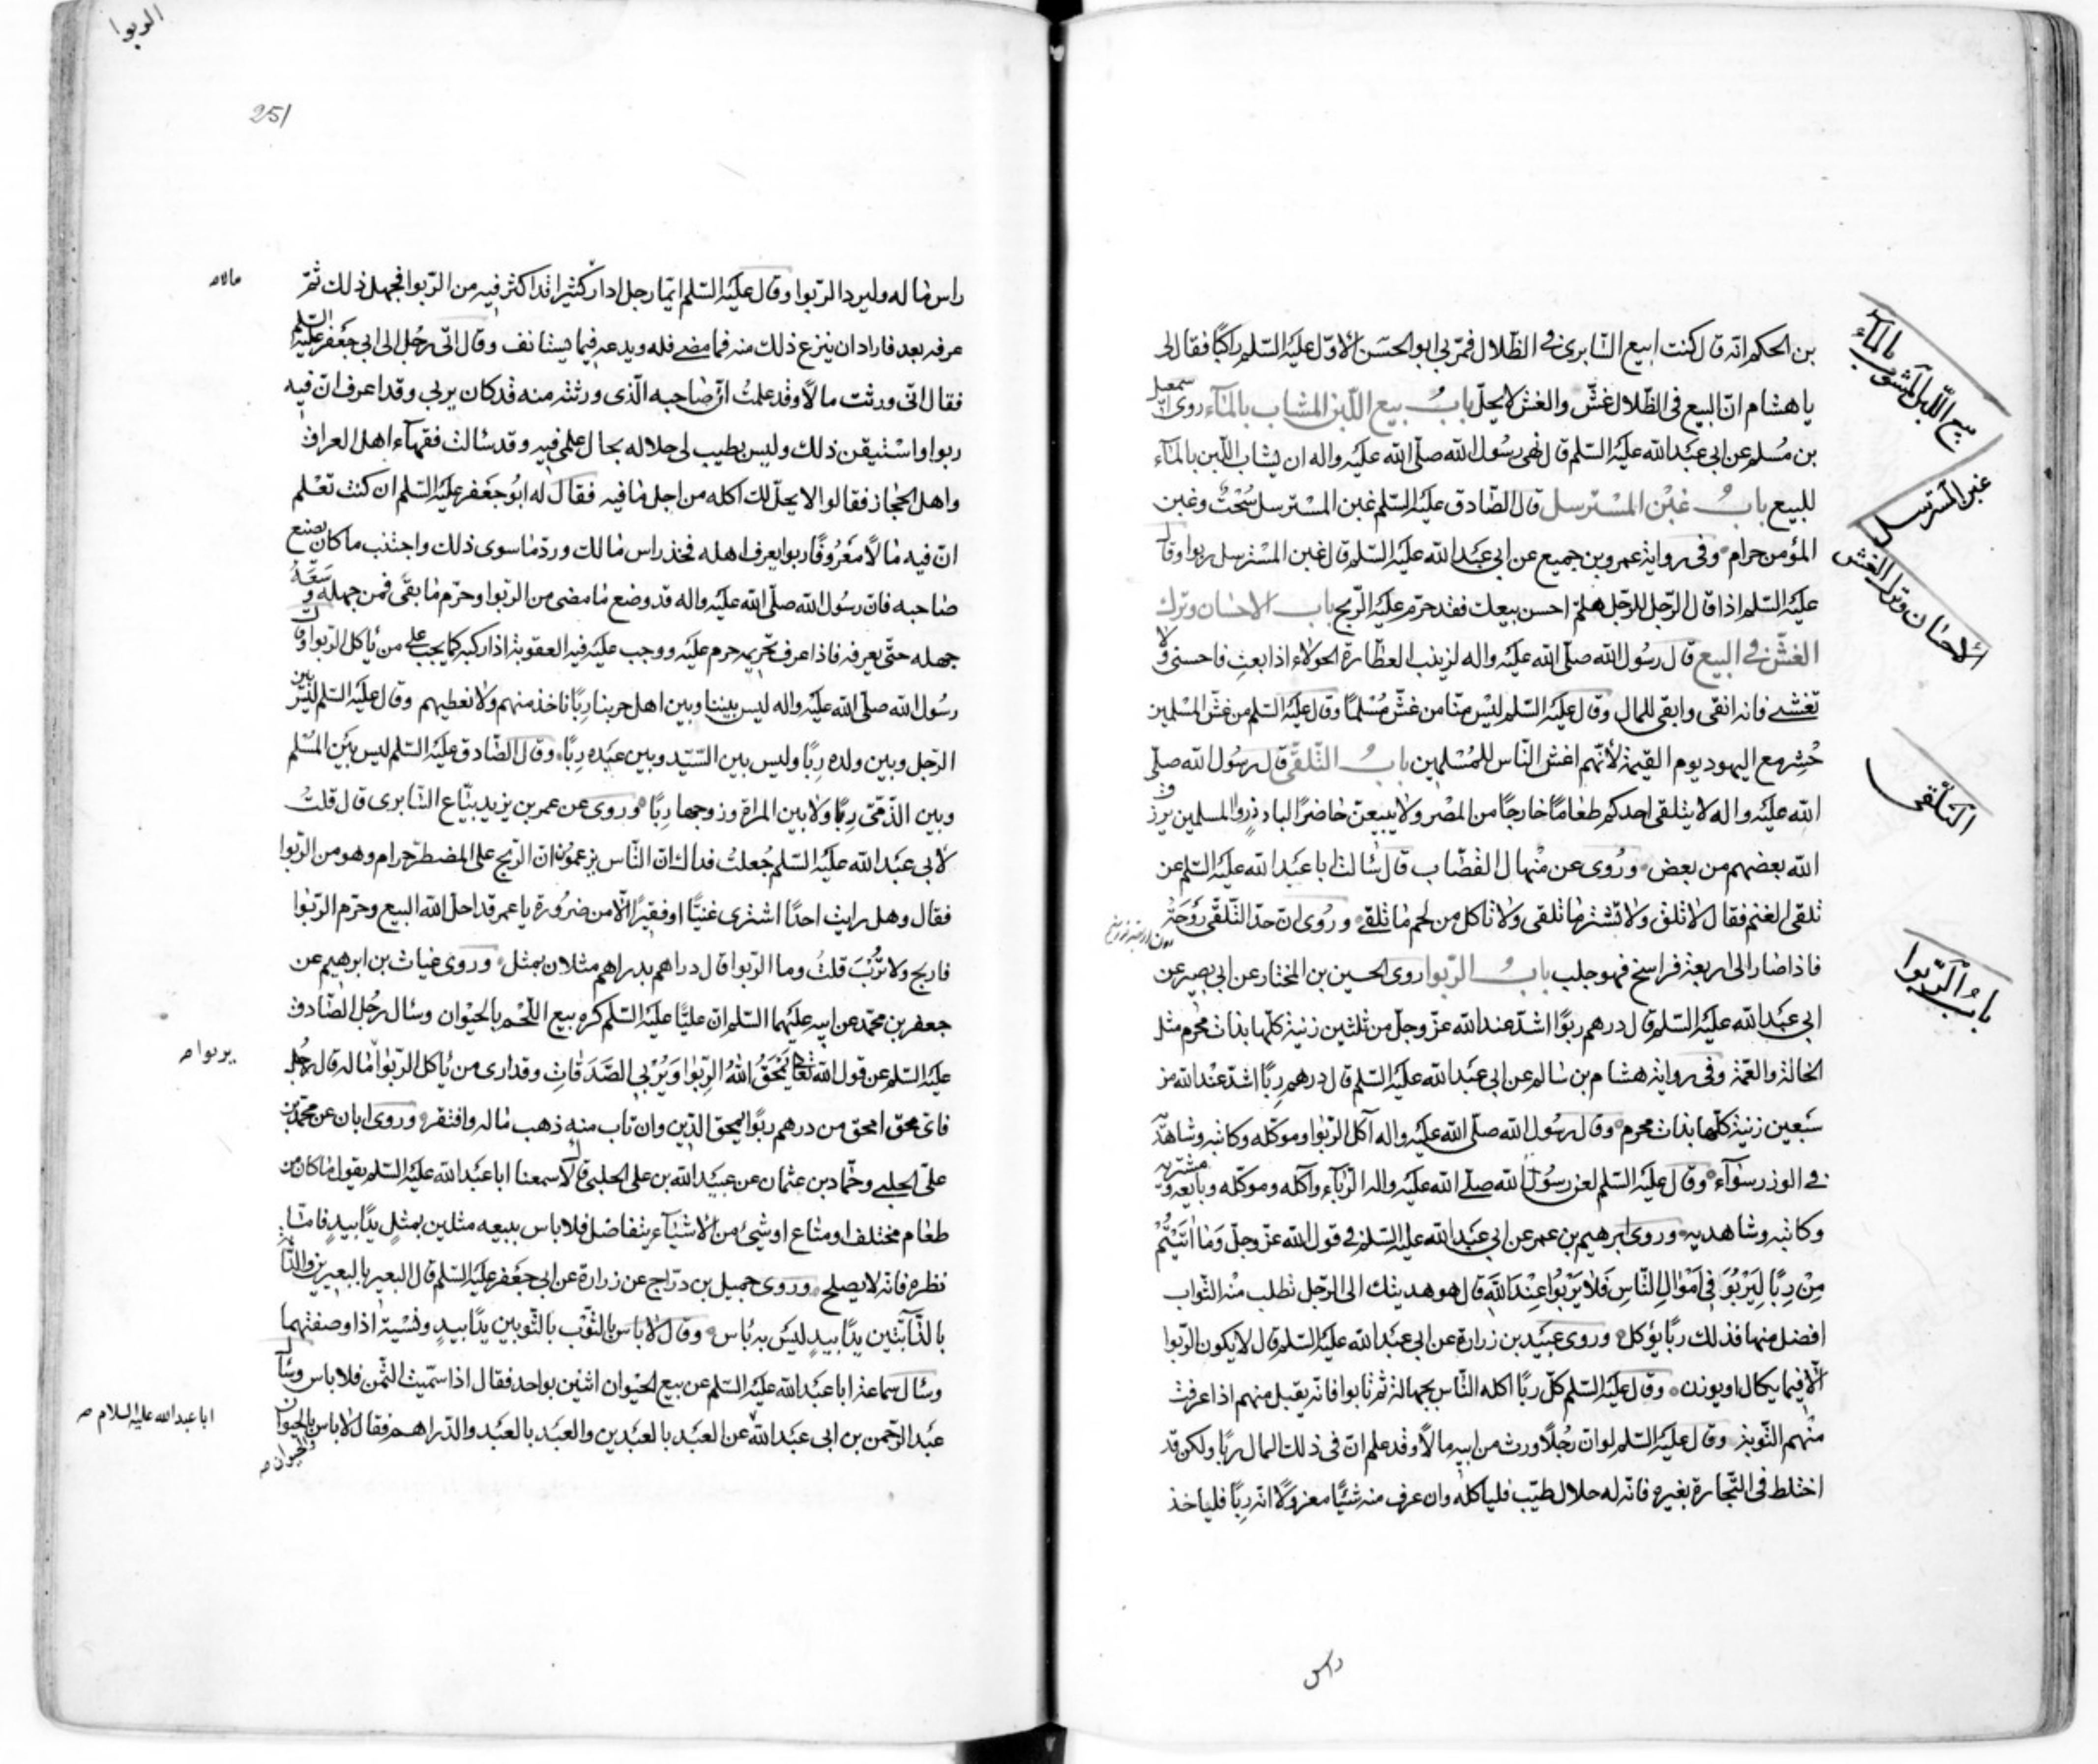 بن الحكم انّه قال كنت ابيع السّابرى فى الظّلال فمرّ بى ابو الحسن الاوّل عليه السّلم راكبًا فقال لى
يا هشام انّ البيع فى الظّلال غشّ والغش لا يحلّ باب بيع اللّبن المشاب بالمآء روى اسمعيل
بن مُسلم عن ابى عبد الله عليه السّلم قال نهى رسُول الله صلّى الله عليه واله ان يشاب اللّبن بالمآء
للبيع باب غبن المسترسل قال الصّادق عليه السّلم غبن المسترسل سُحْتٌ وغبن
المؤمن حرام وفى رواية عمرو بن جميع عن ابى عبد الله عليه السّلم قال غبن المسترسل ربوا وقال
عليه السّلم اذا قال الرّجل للرّجل هلمّ احسن بيعك فقد حرم عليه الرّبح باب الاحسان وترك
الغشّ فى البيع قال رسُول الله صلّى الله عليه واله لزينب العطّارة الحولاء اذا بعتِ فاحسنى ولا
تغشى فانه انقى وابقى للمال وقال عليه السّلم ليس منّا من غشّ مُسْلمًا وقال عليه السّلم من غشّ المسلمين
حُشِر مع اليهود يوم القيمة لانّهم اغشّ النّاس للمُسْلمين باب التّلقّى قال رسُول الله صلّى
الله عليه واله لا يتلقى احدكم طعامًا خارجًا من المصر ولا يبيعنّ حاضرًا لباد ذروا المسلمين يرزق
الله بعضهم من بعض ورُوى عن منهال القصّاب قال سالت ابا عبد الله عليه السّلم عن
تلقى الغنم فقال لا تلق ولا تشتر ما تلقى ولا تاكل من لحم ما تلقى ورُوى انّ حدّ التّلقّى رَوْحَة
فاذا صار الى اربعة فراسخ فهو جلب باب الرّبوا روى الحسين بن المختار عن ابى بصير عن
ابى عبد الله عليه السّلم قال درهم ربوًا اشدّ عند الله عزّ وجلّ من ثلثين زنية كلّها بذات محرم مثل
الخالة والعمّة وفى رواية هشام بن سالم عن ابى عبد الله عليه السّلم قال درهم ربًا اشدّ عند الله من
سَبعين زنية كلّها بذات محرم وقال رسُول الله صلّى الله عليه واله آكل الرّبوا وموكله وكاتبه وشاهداه
فى الوزر سوآء وقال عليه السّلم لعن رسُول الله صلّى الله عليه واله الرّبا وآكله وموكله وبايعه ومشتريه
وكاتبه وشاهديه وروى ابرهيم بن عمر عن ابى عبد الله عليه السّلم فى قول الله عزّ وجلّ وَمَا اتَيْتُمْ
مِنْ رِبًا لِيَرْبُوَ فِى اَمْوَالِ النَّاسِ فَلا يَرْبُوا عِنْدَ اللهِ قال هو هديتك الى الرّجل تطلب منه الثّواب
افضل منها فذلك ربًا يؤكل وروى عبيد بن زرارة عن ابى عبد الله عليه السّلم قال لا يكون الرّبوا
الّا فيما يكال او يوزن وقال عليه السّلم كلّ ربًا اكله النّاس بجهالة ثمّ تابوا فانّه يقبل منهم اذا عرفت
منهم التّوبة وقال عليه السّلم لو انّ رجُلًا ورث من ابيه مالًا وقد علم انّ فى ذلك المال ربًا ولكن قد
اختلط فى التّجارة بغيره فانّه له حلال طيّب فلياكله وان عرف منه شيئًا معزولًا انّه ربًا فلياخذ
راس
بيع اللّبن المشوب بالمآء
غبن المسترسل
الاحسان وترك الغش
التلقى
باب الرّبوا
الربوا
251
راس ماله وليرد الرّبوا وقال عليه السّلم ايّما رجل ادار كثيرا قد اكثر فيه من الرّبوا فجهل ذلك ثمّ
عرفه بعد فاراد ان ينزع ذلك منه فما مضى فله ويدعه فيما يستانف وقال اتى رجُل الى ابى جعفر عليه السّلم
فقال انّى ورثت مالًا وقد علمتُ انّ صاحبه الّذى ورثته منه قد كان يربى وقد اعرف انّ فيه
ربوا واستيقن ذلك وليس يطيب لى حلاله بحال علمى فيه وقد سالت فقهآء اهل العراق
واهل الحجاز فقالوا لا يحلّ لك اكله من اجل ما فيه فقال له ابُو جعفر عليه السّلم ان كنت تعْلم
انّ فيه مالًا مَعْرُوفًا ربوا يعرف اهله فخذ راس مالك وردّ ما سوى ذلك واجتنب ما كان يصنع
صاحبه فانّ رسُول الله صلّى الله عليه واله قد وضع ما مضى من الرّبوا وحرّم ما بقى فمن جهله وسعه
جهله حتّى يعرفه فاذا عرف تحريمه حرم عليه ووجب عليه فيه العقوبة اذا ركبه كما يجب على من ياكل الرّبوا وقال
رسُول الله صلّى الله عليه واله ليس بيننا وبين اهل حربنا ربًا ناخذ منهم ولا نعطيهم وقال عليه السّلم ليس بين
الرّجل وبين ولده ربًا وليس بين السّيّد وبين عبده ربًا وقال الصّادق عليه السّلم ليس بين المُسْلم
وبين الذّمّى ربًا ولا بين المراة وزوجها ربًا وروى عن عمر بن يزيد بيّاع السّابرى قال قلتُ
لابى عبد الله عليه السّلم جُعلتُ فداك انّ النّاس يزعمون ان الرّبح على المضطرّ حرام وهو من الرّبوا
فقال وهل رايت احدًا اشترى غنيًّا او فقيرًا الّا من ضرُورة يا عمر قد احلّ الله البيع وحرّم الرّبوا
فاربح ولا تُرْبَ قلتُ وما الرّبوا قال دراهم بدراهم مثلان بمثل وروى غياث بن ابرهيم عن
جعفر بن محمد عن ابيه عليهما السّلم انّ عليًّا عليه السّلم كره بيع اللّحم بالحيوان وسال رجُل الصّادق
عليه السّلم عن قول الله تعالى يَمْحَقُ اللهُ الرِّبوا وَيُرْبِى الصَّدَقَاتِ وقد ارى من ياكل الرّبوا ماله قال
فاىّ محق امحق من درهم ربًوا يمحق الدّين وان تاب منه ذهب ماله وافتقر وروى ابان عن محمّد بن
علىّ الحلبى وحمّاد بن عثمان عن عبيد الله بن على الحلبى قالا سمعنا ابا عبد الله عليه السّلم يقول ما كان من
طعام مختلف او متاع او شئ من الاشيآء يتفاضل فلا باس ببيعه مثلين بمثلٍ يدًا بيدٍ فامّا
نظره فانّه لا يصلح وروى جميل بن درّاج عن زرارة عن ابى جعفر عليه السّلم قال البعير بالبعيرين والدّابة
بالدّابّتين يدًا بيدٍ ليس به باس وقال لا باس بالثّوب بالثّوبين يدًا بيدٍ ونسية اذا وصفتهما
وسال سماعة ابا عبد الله عليه السّلم عن بيع الحيوان اثنين بواحد فقال اذا سمّيت الثّمن فلا باس وسال
عبد الرّحمن بن ابى عبد الله عن العبد بالعبدين والعبد بالعبد والدّراهم فقال لا باس بالحيوان
مالا ص
يربوا ص
ابا عبد الله عليه السلام ص